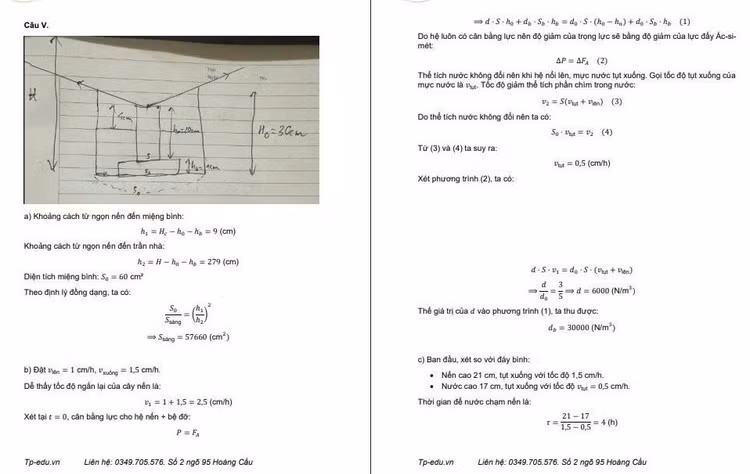 Câu V.
H
H₀=30cm
S₀
a) Khoảng cách từ ngọn nến đến miệng bình:
h₁ = H꜀ − h₀ − h_b = 9 (cm)
Khoảng cách từ ngọn nến đến trần nhà:
h₂ = H − h₀ − h_b = 279 (cm)
Diện tích miệng bình: S₀ = 60 cm²
Theo định lý đồng dạng, ta có:
S₀/S_sáng = (h₁/h₂)²
⟹ S_sáng = 57660 (cm²)
b) Đặt v_lên = 1 cm/h, v_xuống = 1,5 cm/h.
Dễ thấy tốc độ ngắn lại của cây nến là:
v₁ = 1 + 1,5 = 2,5 (cm/h)
Xét tại t = 0, cân bằng lực cho hệ nến + bệ đỡ:
P = F_A
Tp-edu.vn Liên hệ: 0349.705.576. Số 2 ngõ 95 Hoàng Cầu
⟹ d · S · h₀ + d_b · S_b · h_b = d₀ · S · (h₀ − h_n) + d₀ · S_b · h_b (1)
Do hệ luôn có cân bằng lực nên độ giảm của trọng lực sẽ bằng độ giảm của lực đẩy Ác-si-
mét:
ΔP = ΔF_A (2)
Thể tích nước không đổi nên khi hệ nổi lên, mực nước tụt xuống. Gọi tốc độ tụt xuống của
mực nước là v_tụt. Tốc độ giảm thể tích phần chìm trong nước:
v₂ = S(v_tụt + v_lên) (3)
Do thể tích nước không đổi nên ta có:
S₀ · v_tụt = v₂ (4)
Từ (3) và (4) ta suy ra:
v_tụt = 0,5 (cm/h)
Xét phương trình (2), ta có:
d · S · v₁ = d₀ · S · (v_tụt + v_lên)
⟹ d/d₀ = 3/5 ⟹ d = 6000 (N/m³)
Thế giá trị của d vào phương trình (1), ta thu được:
d_b = 30000 (N/m³)
c) Ban đầu, xét so với đáy bình:
• Nến cao 21 cm, tụt xuống với tốc độ 1,5 cm/h.
• Nước cao 17 cm, tụt xuống với tốc độ v_tụt = 0,5 cm/h.
Thời gian để nước chạm nến là:
τ = (21 − 17)/(1,5 − 0,5) = 4 (h)
Tp-edu.vn Liên hệ: 0349.705.576. Số 2 ngõ 95 Hoàng Cầu